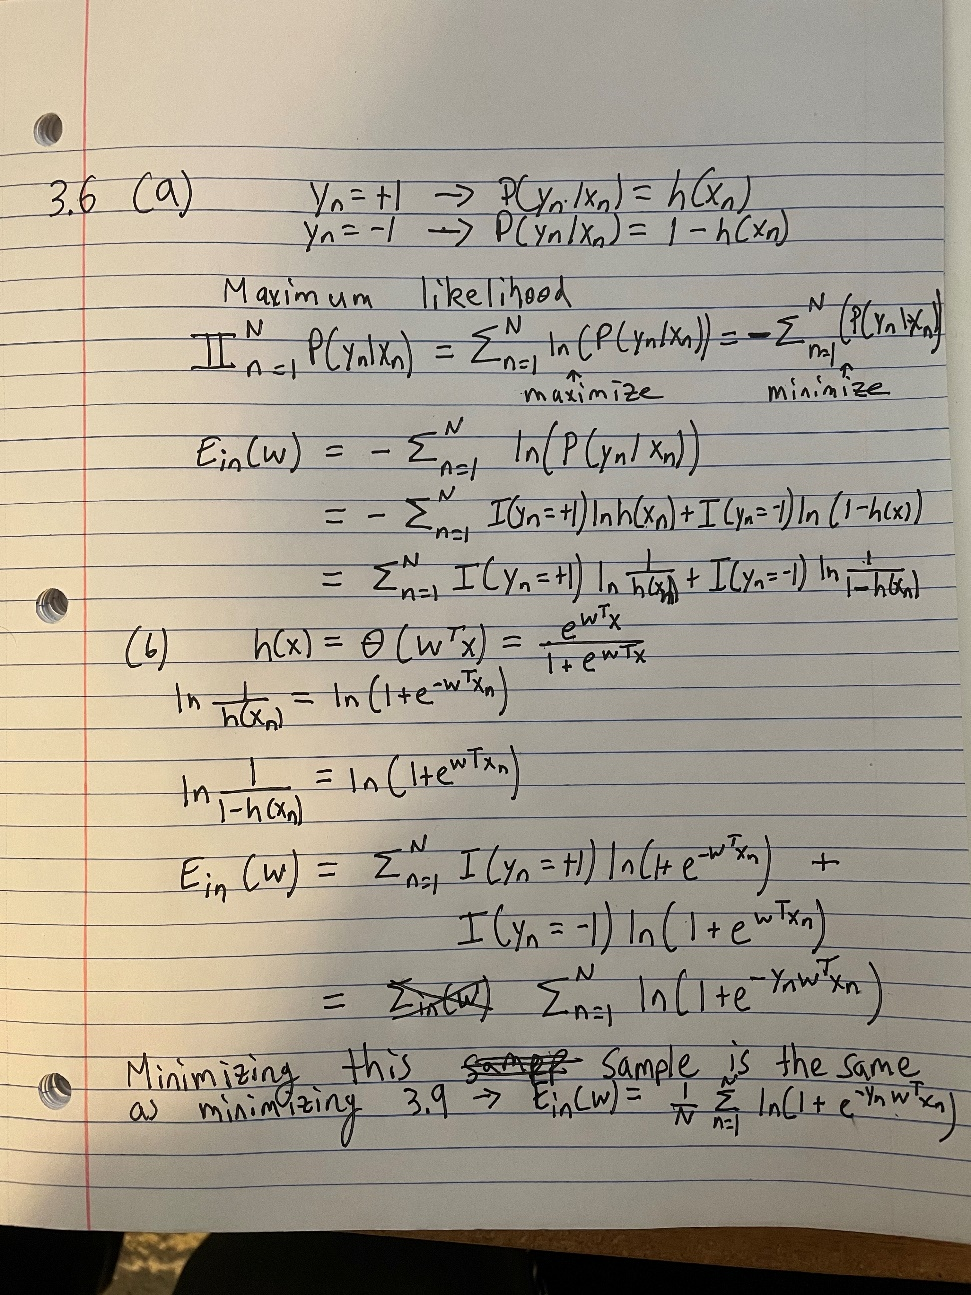 3.6 (a) yₙ = +1 → P(yₙ|xₙ) = h(xₙ)
yₙ = -1 → P(yₙ|xₙ) = 1 - h(xₙ)
Maximum likelihood
∏ᴺₙ₌₁ P(yₙ|xₙ) = Σᴺₙ₌₁ ln(P(yₙ|xₙ)) = -Σᴺₙ₌₁ (P(yₙ|xₙ)
↑ maximize ↑ minimize
Eᵢₙ(w) = - Σᴺₙ₌₁ ln(P(yₙ|xₙ))
= - Σᴺₙ₌₁ I(yₙ=+1) ln h(xₙ) + I(yₙ=-1) ln (1-h(x))
= Σᴺₙ₌₁ I(yₙ=+1) ln 1/h(xₙ) + I(yₙ=-1) ln 1/1-h(xₙ)
(b) h(x) = θ(wᵀx) = e^wᵀx / 1+e^wᵀx
ln 1/h(xₙ) = ln(1+e^-wᵀxₙ)
ln 1/1-h(xₙ) = ln(1+e^wᵀxₙ)
Eᵢₙ(w) = Σᴺₙ₌₁ I(yₙ=+1) ln(1+e^-wᵀxₙ) +
I(yₙ=-1) ln(1+e^wᵀxₙ)
= Σᴺₙ₌₁ ln(1+e^-yₙwᵀxₙ)
Minimizing this sample is the same
as minimizing 3.9 → Eᵢₙ(w) = 1/N Σᴺₙ₌₁ ln(1+e^-yₙwᵀxₙ)